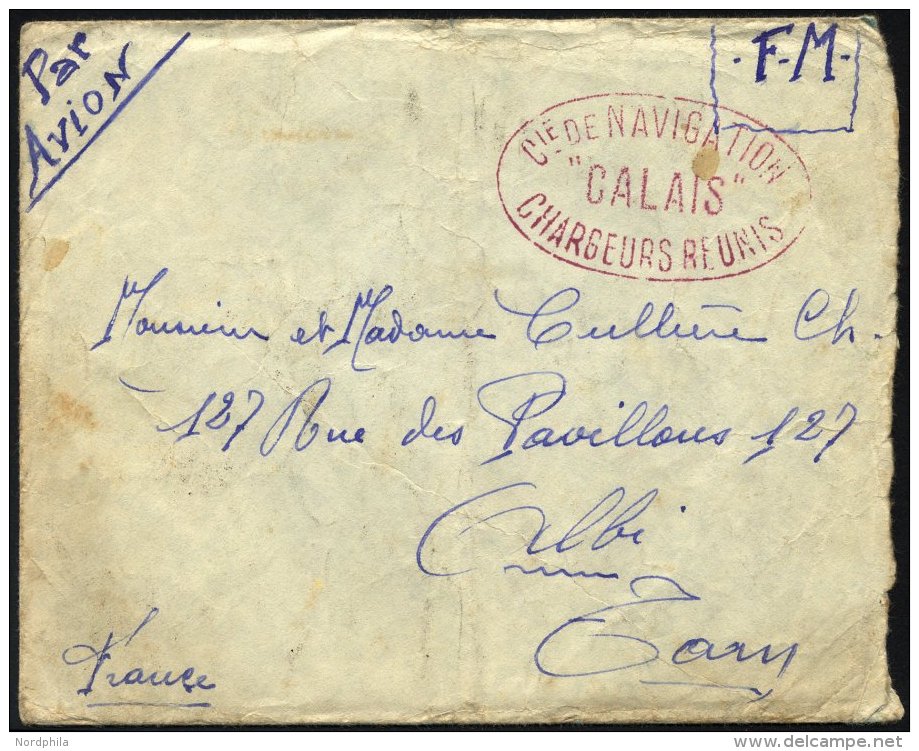 Par
Avion
·F·M·
Cie DE NAVIGATION
"CALAIS"
CHARGEURS REUNIS
Monsieur et Madame Cullière Ch.
127 Rue des Pavillons 127
Albi
Tarn
France
Nordphila
delcampe.net